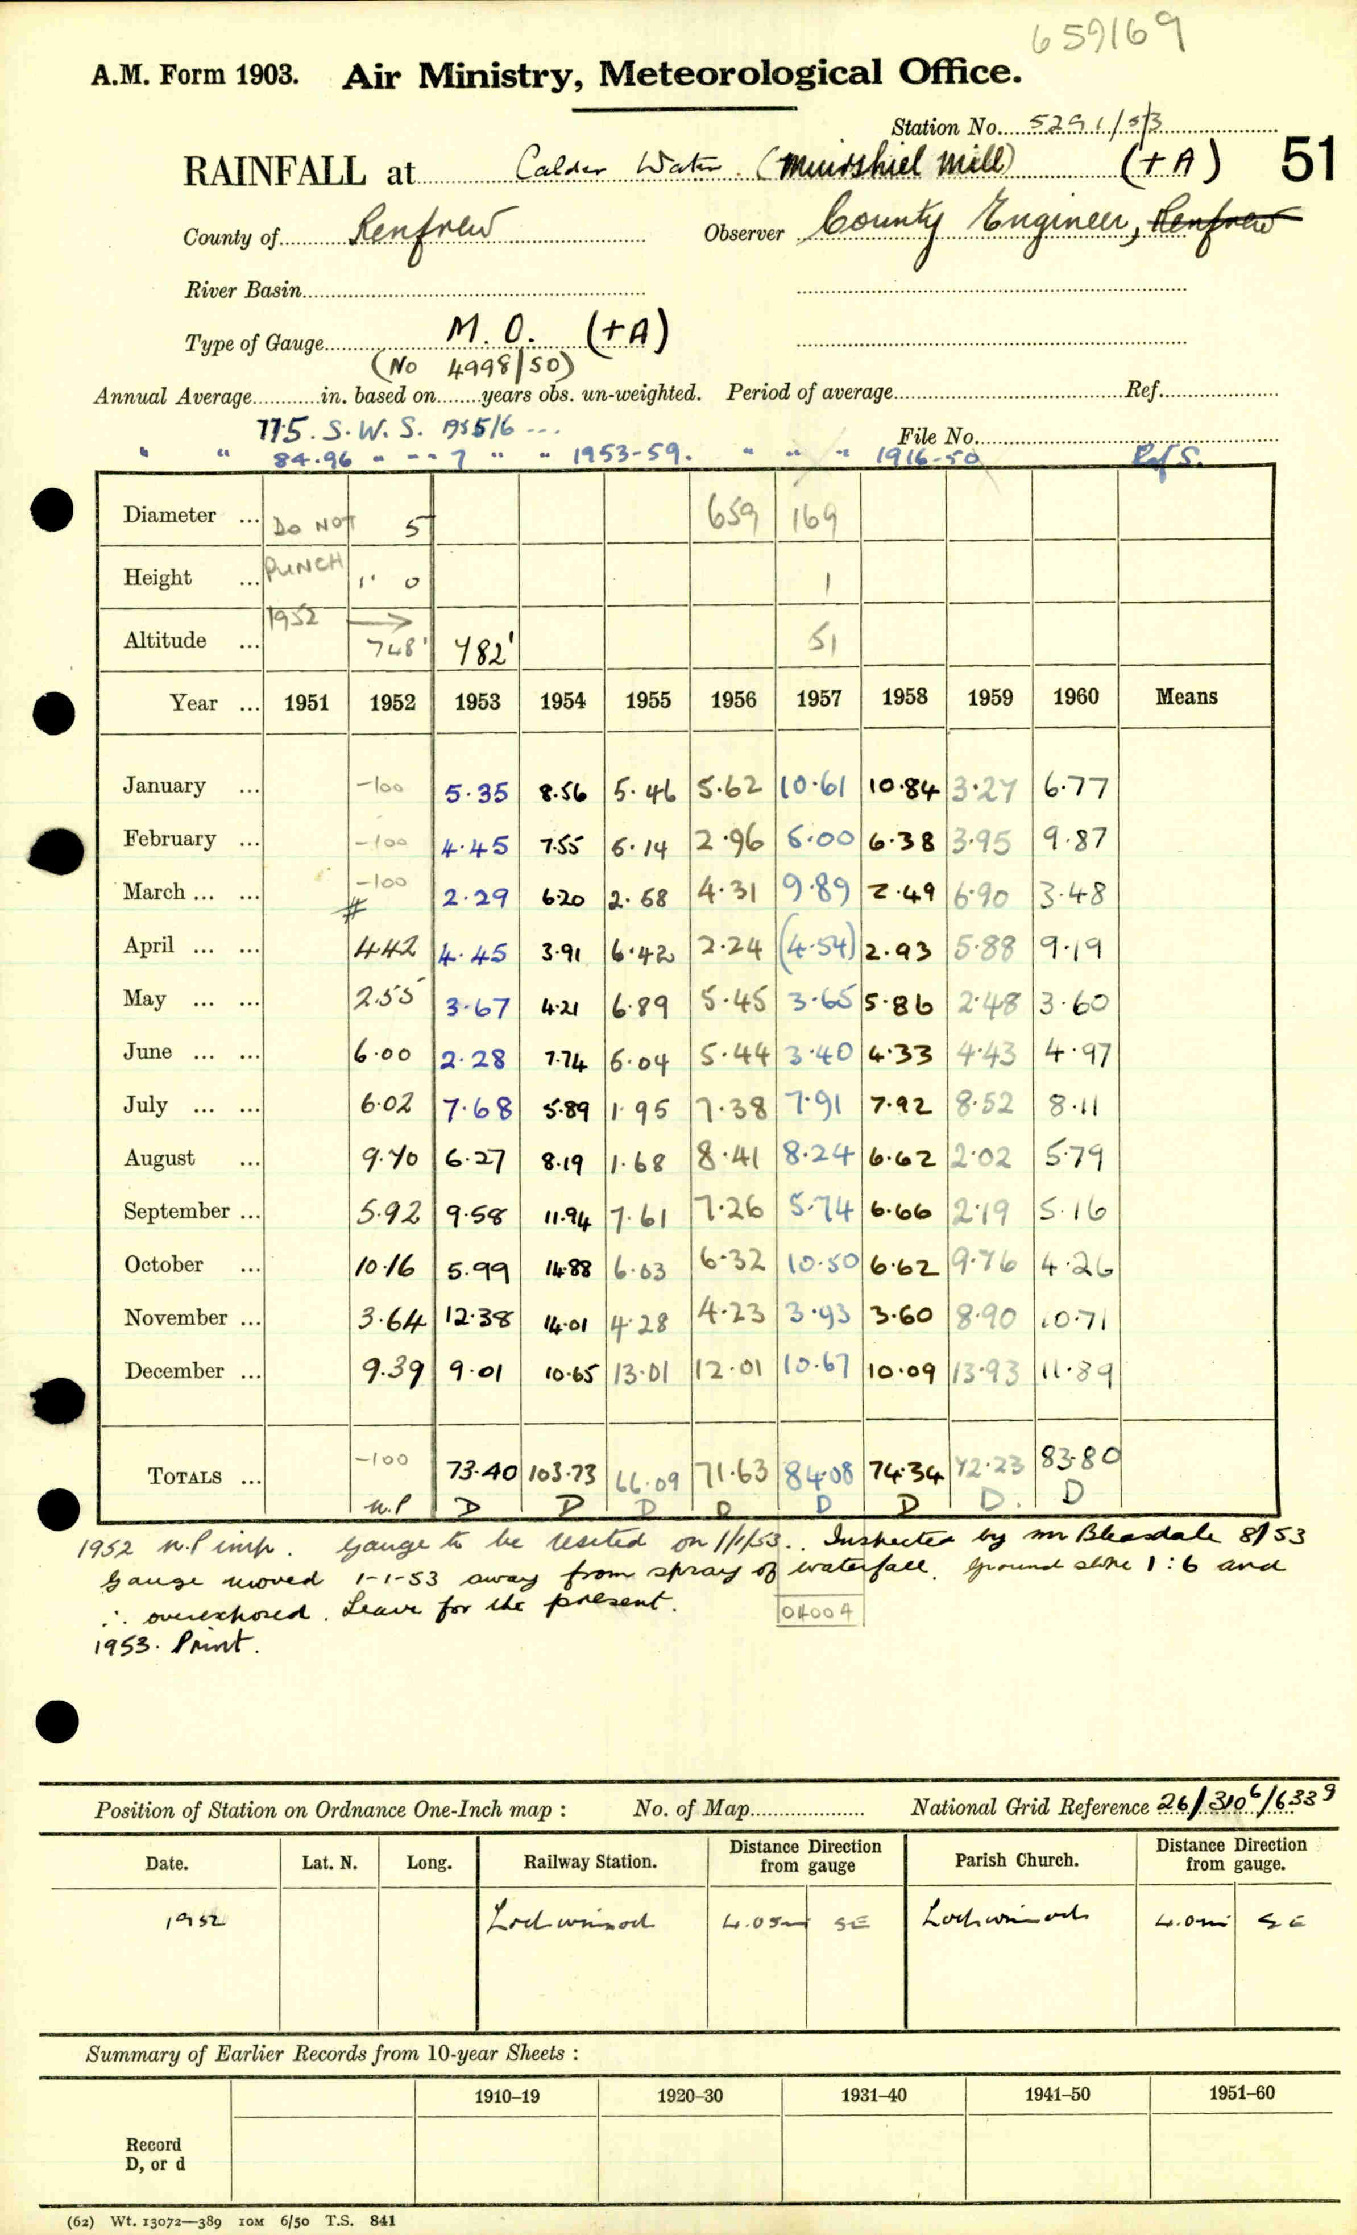 659169
A.M. Form 1903. Air Ministry, Meteorological Office.
Station No. 5291/53
RAINFALL at Calder Water. (Muirshiel Mill) (+A) 51
County of Renfrew Observer County Engineer, Renfrew
River Basin
Type of Gauge M.O. (+A)
(No 4998/50)
Annual Average in. based on years obs. un-weighted. Period of average Ref.
77.5. S.W.S. 1955/6 ---
File No.
" " 84.96 " -- 7 " " 1953-59. " " " 1916-50 Ref S.
Diameter ... DO NOT 5 659 169
Height ... PUNCH 1" 0 1
Altitude ... 1952 → 748' 782' 51
Year ... 1951 1952 1953 1954 1955 1956 1957 1958 1959 1960 Means
January ... -100 5.35 8.56 5.46 5.62 10.61 10.84 3.27 6.77
February ... -100 4.45 7.55 5.14 2.96 5.00 6.38 3.95 9.87
March ... ... -100 2.29 6.20 2.58 4.31 9.89 2.49 6.90 3.48
April ... ... # 4.42 4.45 3.91 6.42 2.24 (4.54) 2.93 5.88 9.19
May ... ... 2.55 3.67 4.21 6.89 5.45 3.65 5.86 2.48 3.60
June ... ... 6.00 2.28 7.74 5.04 5.44 3.40 4.33 4.43 4.97
July ... ... 6.02 7.68 5.89 1.95 7.38 7.91 7.92 8.52 8.11
August ... 9.70 6.27 8.19 1.68 8.41 8.24 6.62 2.02 5.79
September ... 5.92 9.58 11.94 7.61 7.26 5.74 6.66 2.19 5.16
October ... 10.16 5.99 14.88 6.03 6.32 10.50 6.62 9.76 4.26
November ... 3.64 12.38 14.01 4.28 4.23 3.93 3.60 8.90 10.71
December ... 9.39 9.01 10.65 13.01 12.01 10.67 10.09 13.93 11.89
TOTALS ... -100 73.40 103.73 66.09 71.63 84.08 74.34 72.23 83.80
n.P D D D D D D D. D
1952 n.P imp. Gauge to be resited on 1/1/53.. Inspected by Mr Bleasdale 8/53
Gauge moved 1-1-53 away from spray of waterfall. Ground slope 1:6 and
∴ overexposed. Leave for the present. 0400A
1953. Print.
Position of Station on Ordnance One-Inch map : No. of Map National Grid Reference 26/310⁶/633⁹
Date. Lat. N. Long. Railway Station. Distance from Direction gauge Parish Church. Distance from Direction gauge.
1952 Lochwinnoch 4.05m SE Lochwinnoch 4.0m SE
Summary of Earlier Records from 10-year Sheets :
1910–19 1920–30 1931–40 1941–50 1951–60
Record
D, or d
(62) Wt. 13072—389 10M 6/50 T.S. 841